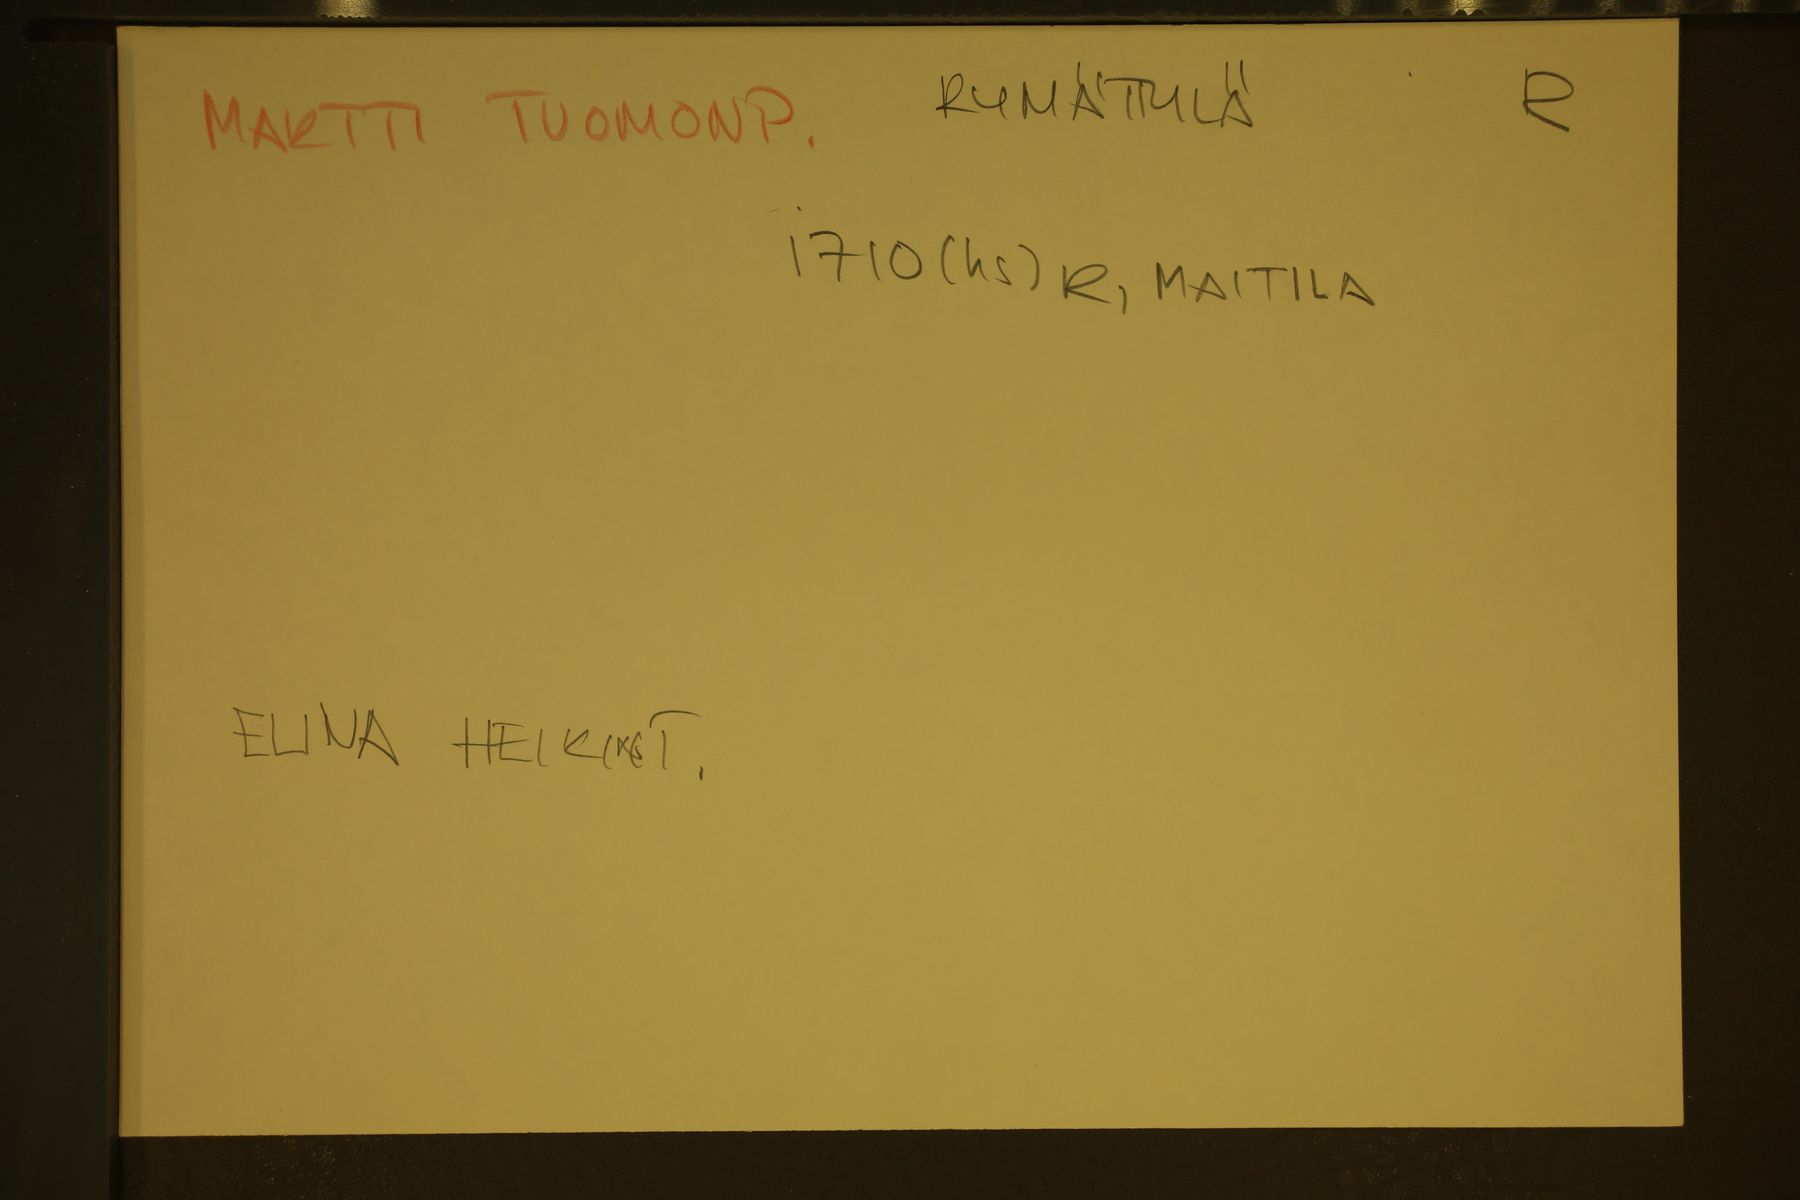 MARTTI TUOMONP. RYMÄTTYLÄ R
1710 (hs) R, MAITILA
ELINA HEIKINT.